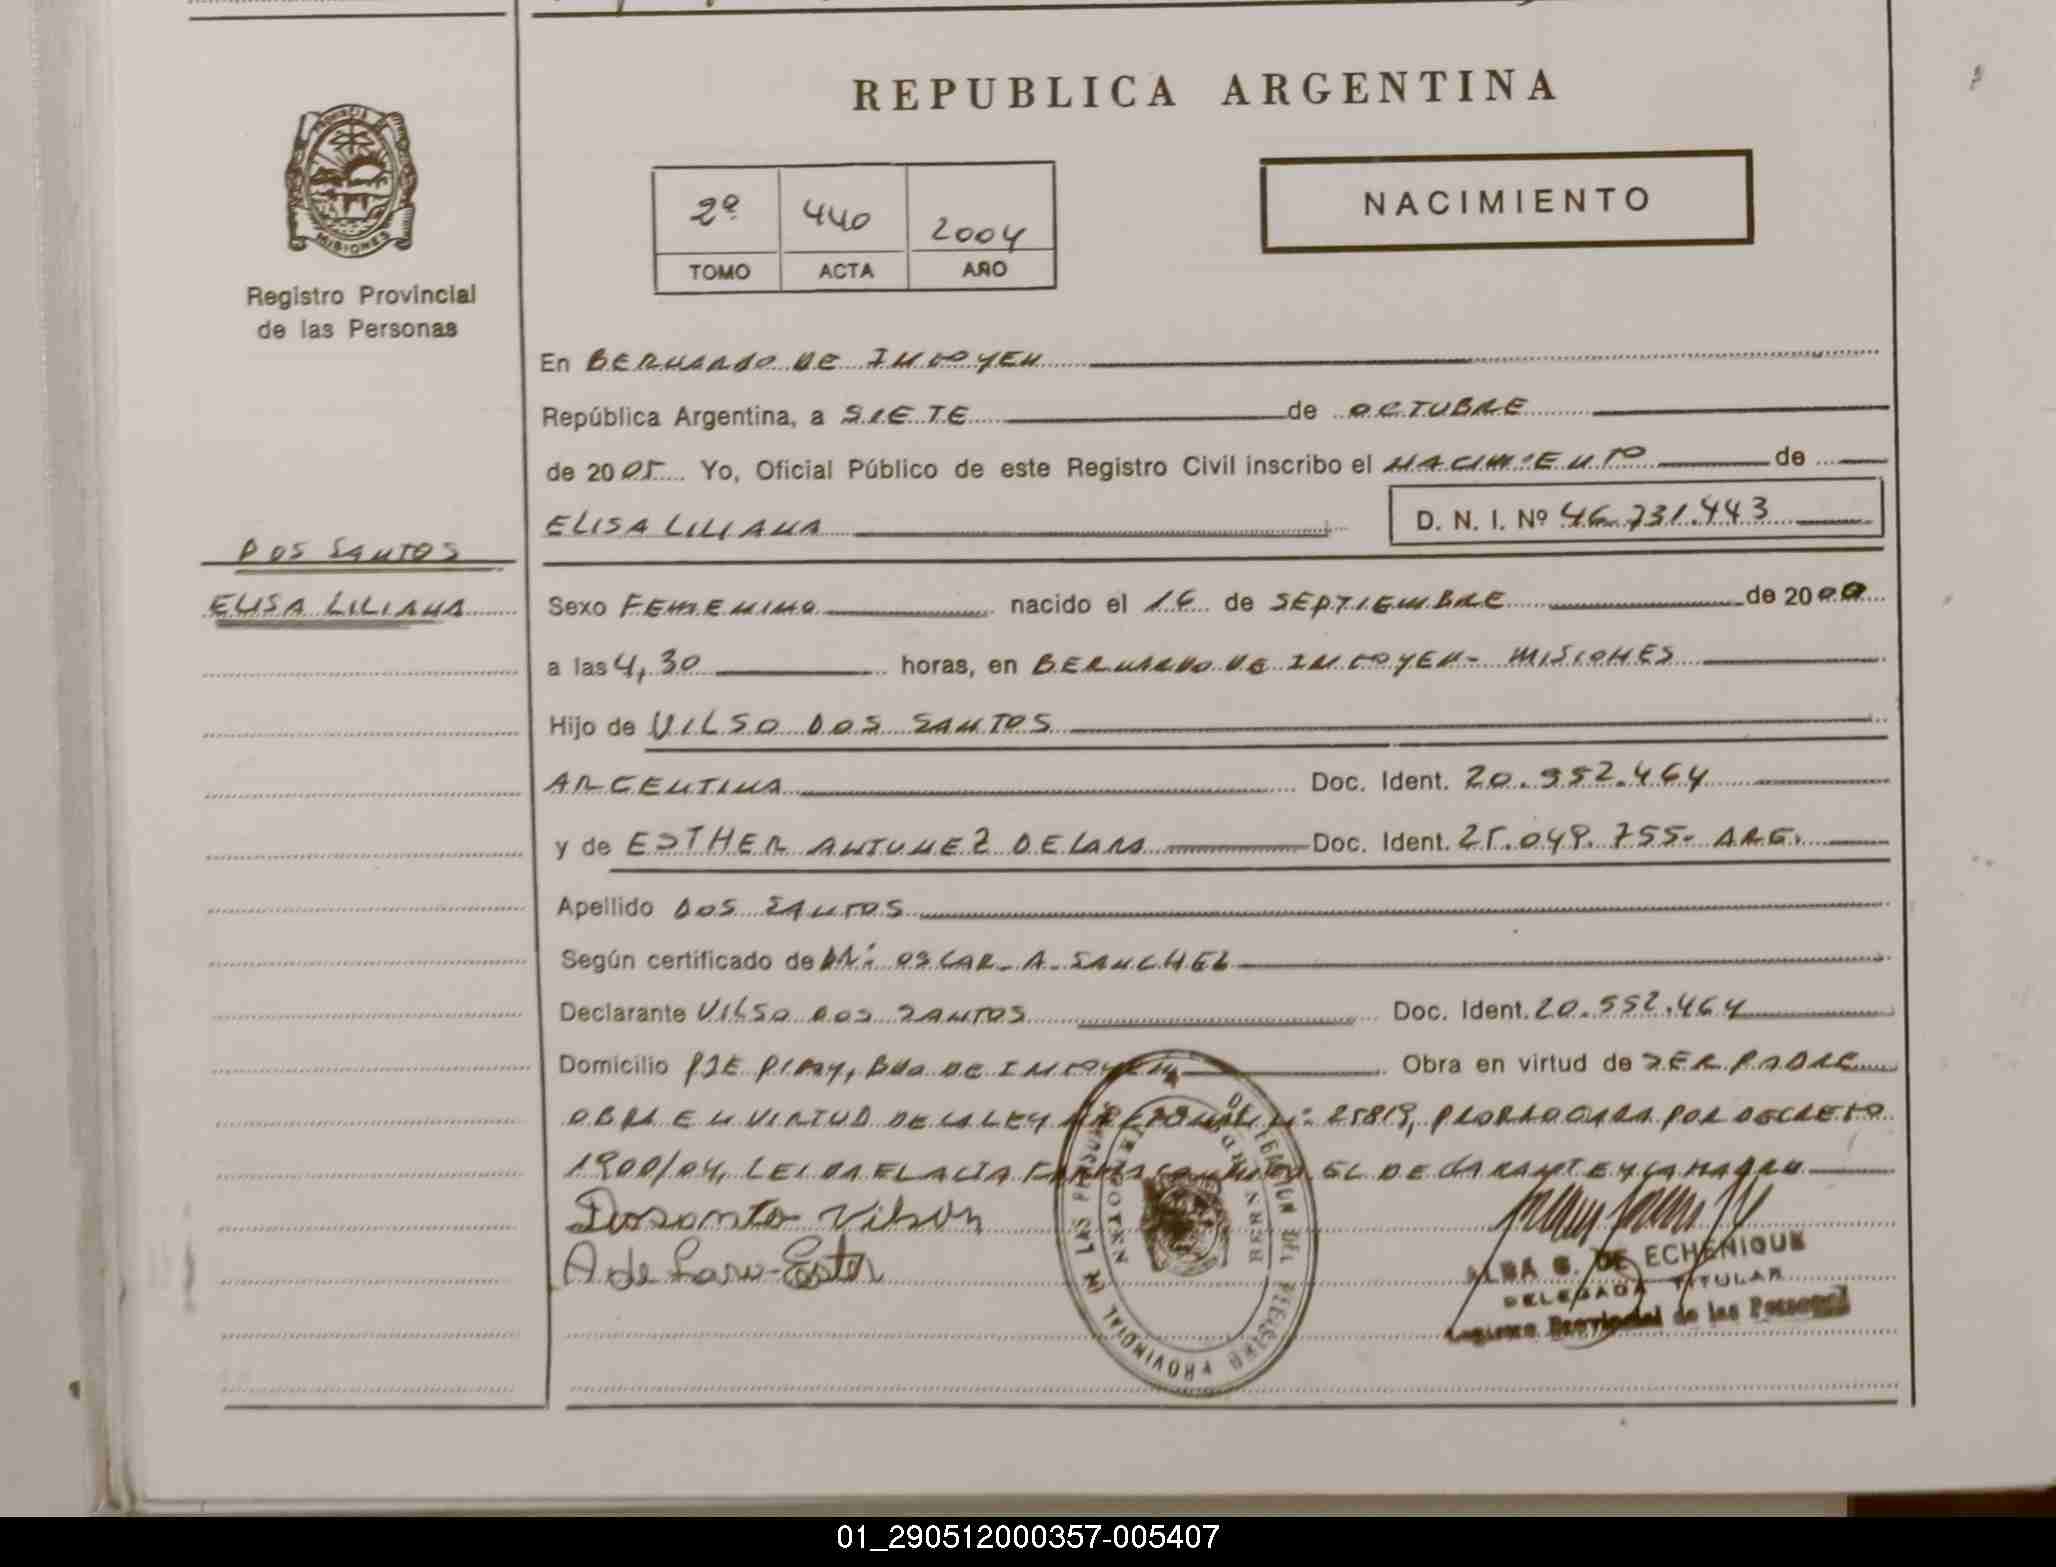 REPUBLICA ARGENTINA
NACIMIENTO
2º 440 2004
TOMO ACTA AÑO
PROVINCIA DE
MISIONES
Registro Provincial
de las Personas
DOS SANTOS
ELISA LILIANA
En BERNARDO DE IRIGOYEN
República Argentina, a SIETE de OCTUBRE
de 2005 Yo, Oficial Público de este Registro Civil inscribo el NACIMIENTO de
ELISA LILIANA D. N. I. Nº 46.731.443
Sexo FEMENINO nacido el 16 de SEPTIEMBRE de 2000
a las 4,30 horas, en BERNARDO DE IRIGOYEN - MISIONES
Hijo de VILSO DOS SANTOS
ARGENTINA Doc. Ident. 20.552.464
y de ESTHER ANTUNEZ DE LARA Doc. Ident. 25.049.755- ARG.
Apellido DOS SANTOS
Según certificado de DR: OSCAR A. SANCHEZ
Declarante VILSO DOS SANTOS Doc. Ident. 20.552.464
Domicilio PJE PIRAY, BDO DE IRIGOYEN Obra en virtud de SER PADRE
OBRA EN VIRTUD DE LA LEY NACIONAL Nº 25819, PRORROGADA POR DECRETO
1900/04, LEIDA EL ACTA FIRMAN CONMIGO EL DECLARANTE Y LA MADRE
Dosanto Vilson
A de Lara Ester
ALBA G. DE ECHENIQUE
DELEGADA TITULAR
Registro Provincial de las Personas
DELEGACION DEL REGISTRO PROVINCIAL DE LAS PERSONAS
BERNARDO DE IRIGOYEN
01_290512000357-005407